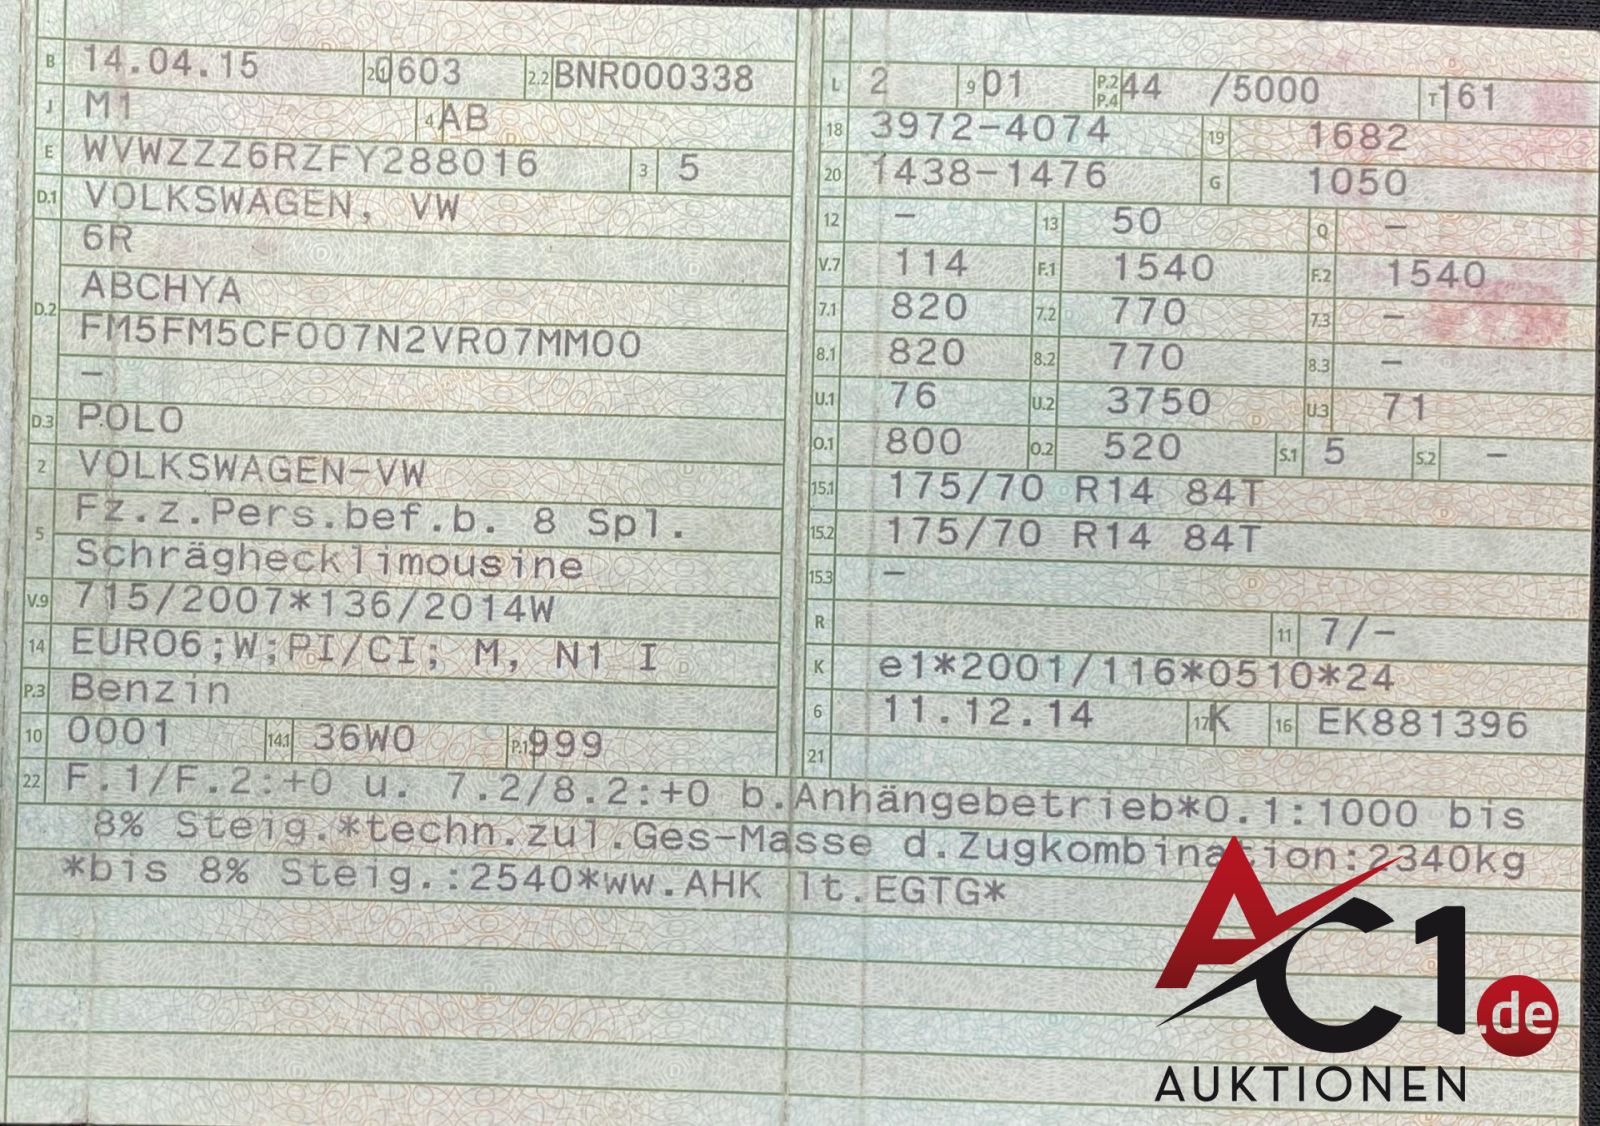 B 14.04.15 2.1 0603 2.2 BNR000338
J M1 4 AB
E WVWZZZ6RZFY288016 3 5
D.1 VOLKSWAGEN, VW
D.2 6R
ABCHYA
FM5FM5CF007N2VR07MM00
–
D.3 POLO
2 VOLKSWAGEN-VW
5 Fz.z.Pers.bef.b. 8 Spl.
Schräghecklimousine
V.9 715/2007*136/2014W
14 EURO6;W;PI/CI; M, N1 I
P.3 Benzin
10 0001 14.1 36W0 P.1 999
L 2 9 01 P.2 P.4 44 /5000 T 161
18 3972-4074 19 1682
20 1438-1476 G 1050
12 – 13 50 Q –
V.7 114 F.1 1540 F.2 1540
7.1 820 7.2 770 7.3 –
8.1 820 8.2 770 8.3 –
U.1 76 U.2 3750 U.3 71
O.1 800 O.2 520 S.1 5 S.2 –
15.1 175/70 R14 84T
15.2 175/70 R14 84T
15.3 –
R 11 7/-
K e1*2001/116*0510*24
6 11.12.14 17 K 16 EK881396
21
22 F.1/F.2:+0 u. 7.2/8.2:+0 b.Anhängebetrieb*O.1:1000 bis
8% Steig.*techn.zul.Ges-Masse d.Zugkombination:2340kg
*bis 8% Steig.:2540*ww.AHK lt.EGTG*
AC1.de
AUKTIONEN